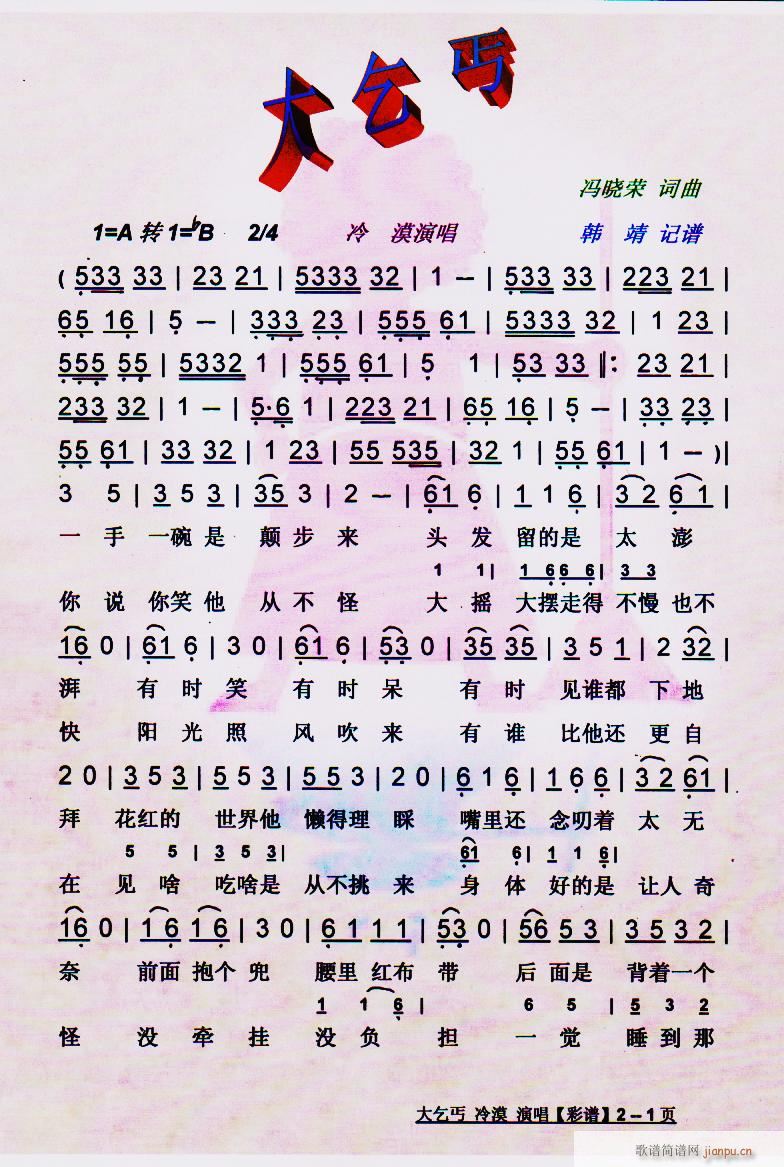 大乞丐
冯晓荣 词曲
1=A 转 1=♭B 2/4 冷 漠演唱 韩 靖 记谱
( 533 33 | 23 21 | 5333 32 | 1 — | 533 33 | 223 21 |
65 16 | 5 — | 333 23 | 555 61 | 5333 32 | 1 23 |
555 55 | 5332 1 | 555 61 | 5 1 | 53 33 ‖: 23 21 |
233 32 | 1 — | 5·6 1 | 223 21 | 65 16 | 5 — | 33 23 |
55 61 | 33 32 | 1 23 | 55 535 | 32 1 | 55 61 | 1 — )|
3 5 | 3 5 3 | 35 3 | 2 — | 61 6 | 1 1 6 | 3 2 6 1 |
一 手 一碗 是 颠 步 来 头 发 留的是 太 澎
1 1 | 1 6 6 6 | 3 3
你 说 你笑 他 从 不 怪 大 摇 大摆走得 不慢 也不
16 0 | 61 6 | 3 0 | 61 6 | 53 0 | 35 35 | 3 5 1 | 2 32 |
湃 有 时 笑 有 时 呆 有 时 见谁都 下 地
快 阳 光 照 风 吹 来 有 谁 比他还 更 自
2 0 | 3 5 3 | 5 5 3 | 5 5 3 | 2 0 | 6 1 6 | 1 6 6 | 3 2 61 |
拜 花红的 世界他 懒得理 睬 嘴里还 念叨着 太 无
5 5 | 5 3 3 | 61 6 | 1 1 6 |
在 见 啥 吃啥是 从不挑 来 身 体 好的是 让人 奇
16 0 | 1 6 1 6 | 3 0 | 6 1 1 1 | 53 0 | 56 5 3 | 3 5 3 2 |
奈 前面 抱个 兜 腰里 红布 带 后 面是 背着一个
1 1 6 | 6 5 | 5 3 2
怪 没 牵 挂 没 负 担 一 觉 睡到那
大乞丐 冷漠 演唱【彩谱】2－1页
歌谱简谱网 jianpu.cn